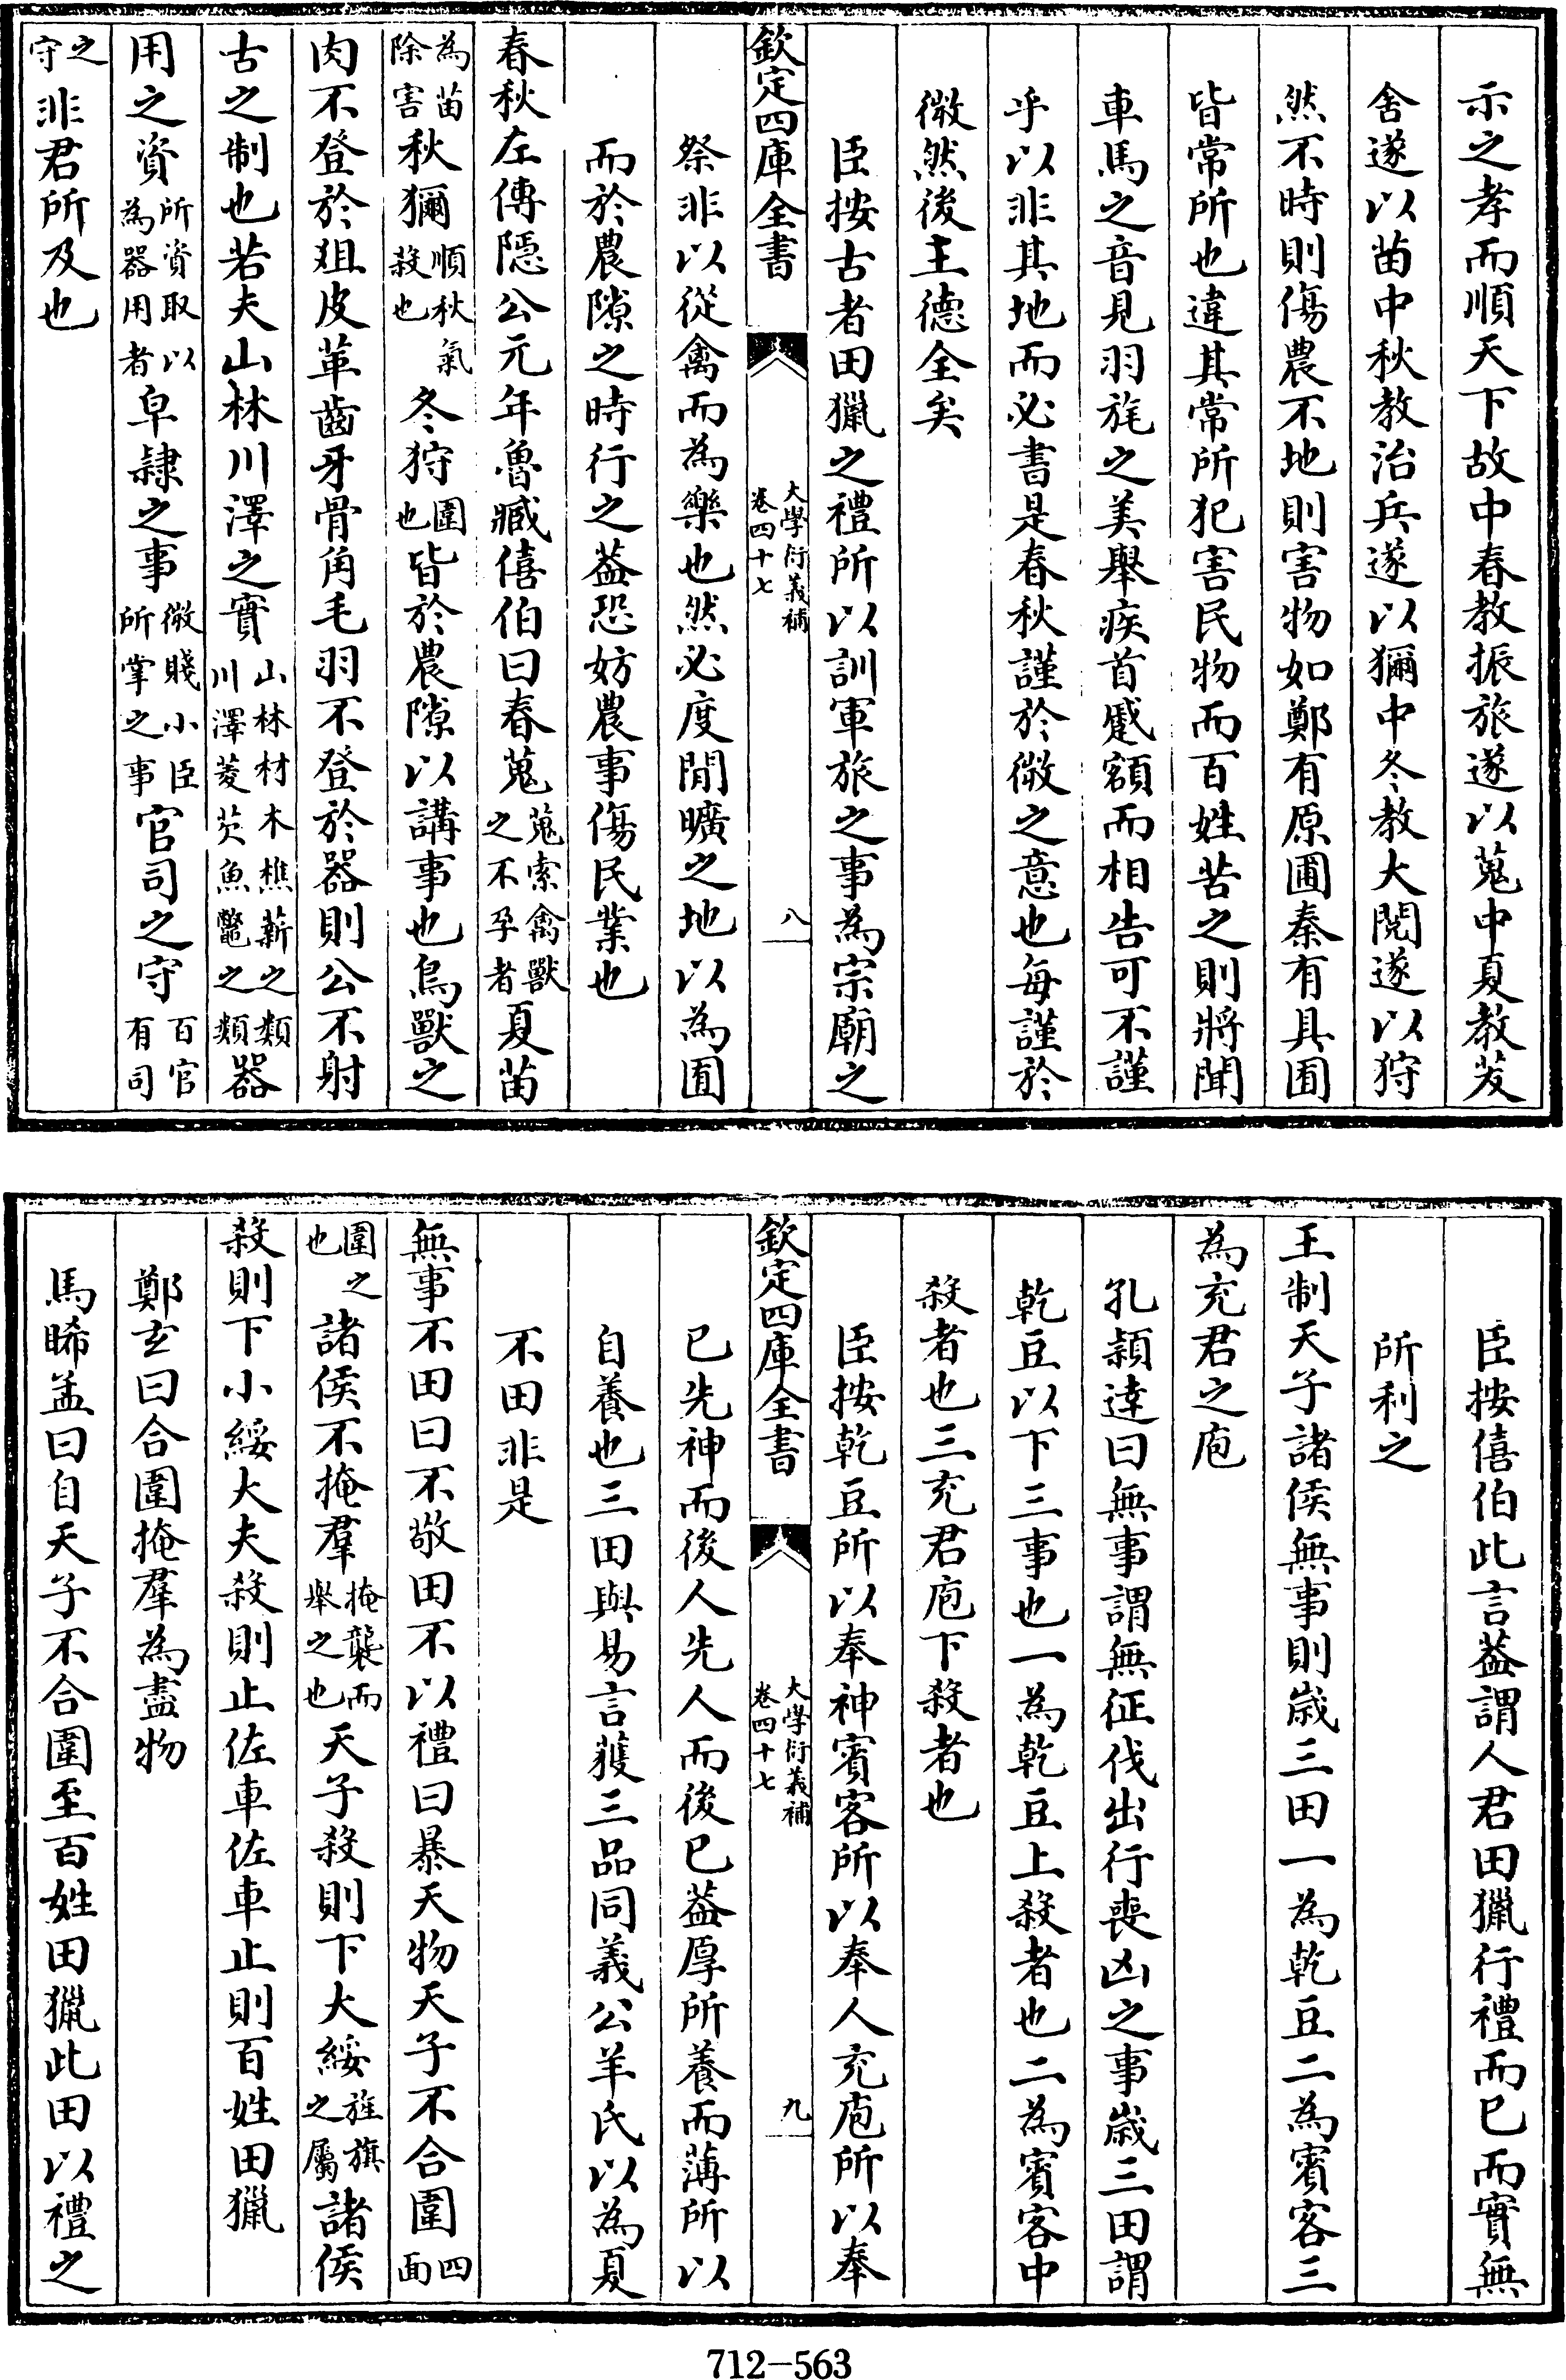 示之孝而順天下故中春教振旅遂以蒐中夏教茇
舍遂以苗中秋教治兵遂以獮中冬教大閱遂以狩
然不時則傷農不地則害物如鄭有原圃秦有具囿
皆常所也違其常所犯害民物而百姓苦之則將聞
車馬之音見羽旄之美舉疾首蹙頞而相告可不謹
乎以非其地而必書是春秋謹於微之意也每謹於
微然後王德全矣
臣按古者田獵之禮所以訓軍旅之事為宗廟之
欽定四庫全書
大學衍義補
卷四十七
八
祭非以從禽而為樂也然必度閒曠之地以為囿
而於農隙之時行之葢恐妨農事傷民業也
春秋左傳隱公元年魯臧僖伯曰春蒐蒐索禽獸之不孕者夏苗
為苗除害秋獮順秋氣殺也冬狩圍也皆於農隙以講事也鳥獸之
肉不登於俎皮革齒牙骨角毛羽不登於器則公不射
古之制也若夫山林川澤之實山林材木樵薪之類川澤菱芡魚鼈之類器
用之資所資取以為器用者皁隷之事微賤小臣所掌之事官司之守百官有司
之守非君所及也
臣按僖伯此言葢謂人君田獵行禮而已而實無
所利之
王制天子諸侯無事則歲三田一為乾豆二為賓客三
為充君之庖
孔穎達曰無事謂無征伐出行喪凶之事歲三田謂
乾豆以下三事也一為乾豆上殺者也二為賓客中
殺者也三充君庖下殺者也
臣按乾豆所以奉神賓客所以奉人充庖所以奉
欽定四庫全書
大學衍義補
卷四十七
九
已先神而後人先人而後已葢厚所養而薄所以
自養也三田與易言獲三品同義公羊氏以為夏
不田非是
無事不田曰不敬田不以禮曰暴天物天子不合圍四面
圍之也諸侯不掩羣掩襲而舉之也天子殺則下大綏旌旗之屬諸侯
殺則下小綏大夫殺則止佐車佐車止則百姓田獵
鄭玄曰合圍掩羣為盡物
馬晞孟曰自天子不合圍至百姓田獵此田以禮之
712-563